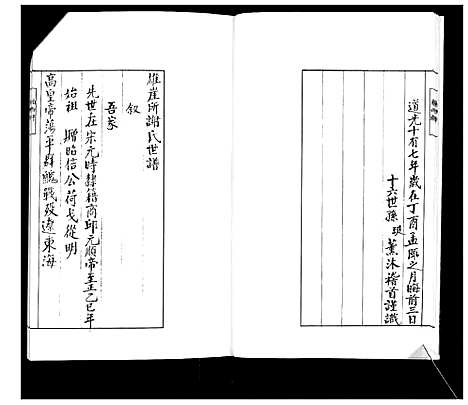 道光十有七年歲在丁酉孟陬之月晦前三日
十六世孫 珽 薰沐稽首謹識
雄崖所謝氏世譜
敘
吾家
先世在宋元時隸籍商邱元順帝至正乙巳年
始祖 贈昭信公荷戈從明
高皇帝蕩平群醜戰歿遼東海